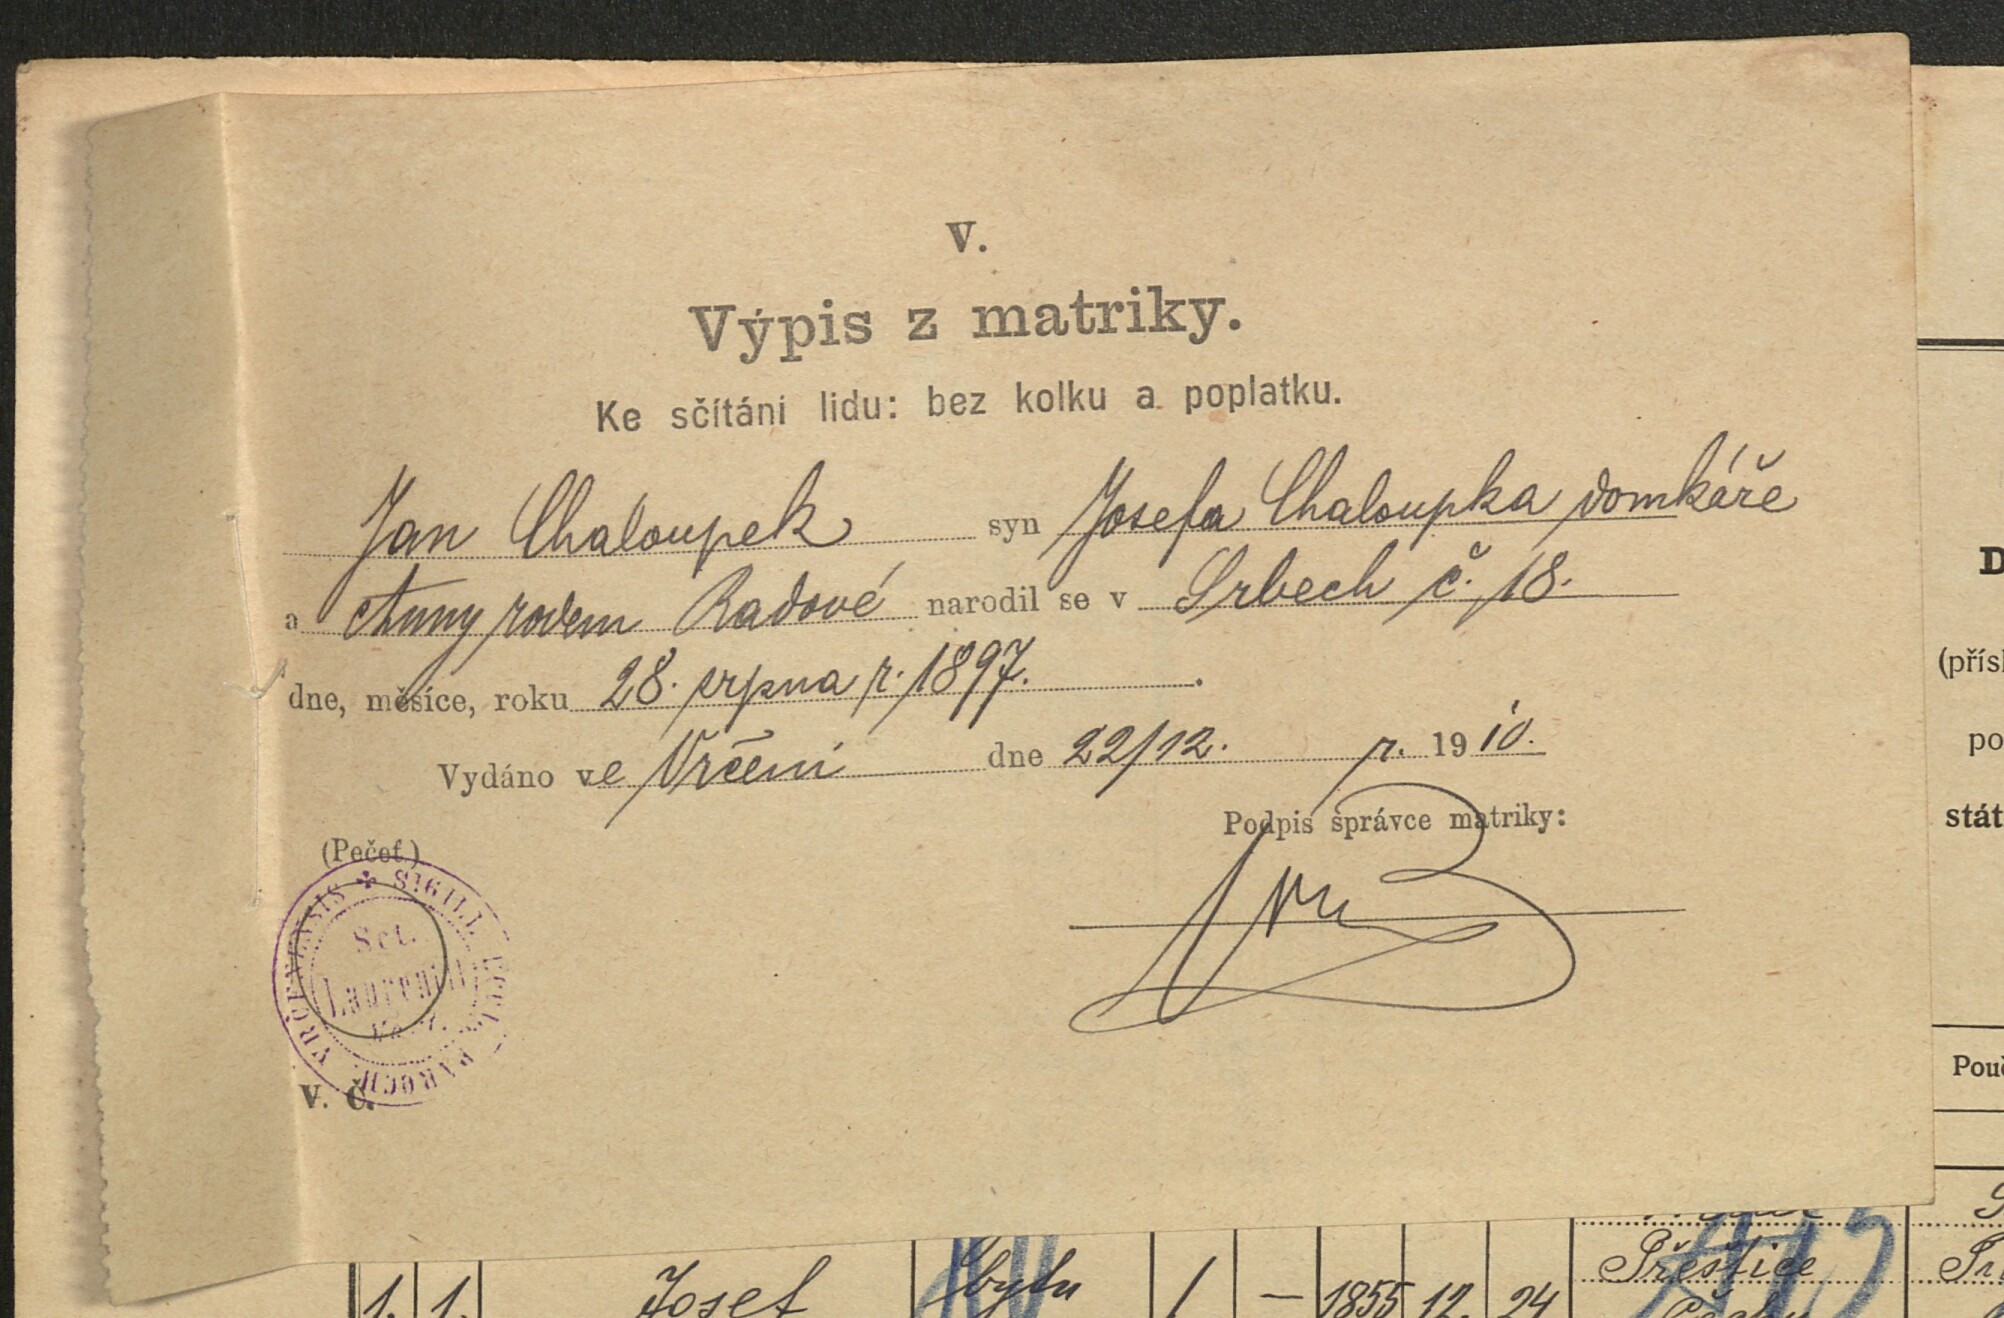 V.
Výpis z matriky.
Ke sčítání lidu: bez kolku a poplatku.
Jan Chaloupek syn Josefa Chaloupka domkáře
a Anny rodem Radové narodil se v Srbech č. 18.
dne, měsíce, roku 28. srpna r. 1897.
Vydáno ve Vrčeni dne 22/12. r. 1910.
Podpis správce matriky:
(Pečeť.)
✠ SIGILL. ECCL. PAROCH. VRČENENSIS
Sct.
Laurentii
V. Č.
D
(přísl
po
stát
Pouč
1. 1. Josef bytu 1 — 1855 12. 24 Přeštice
Čechy